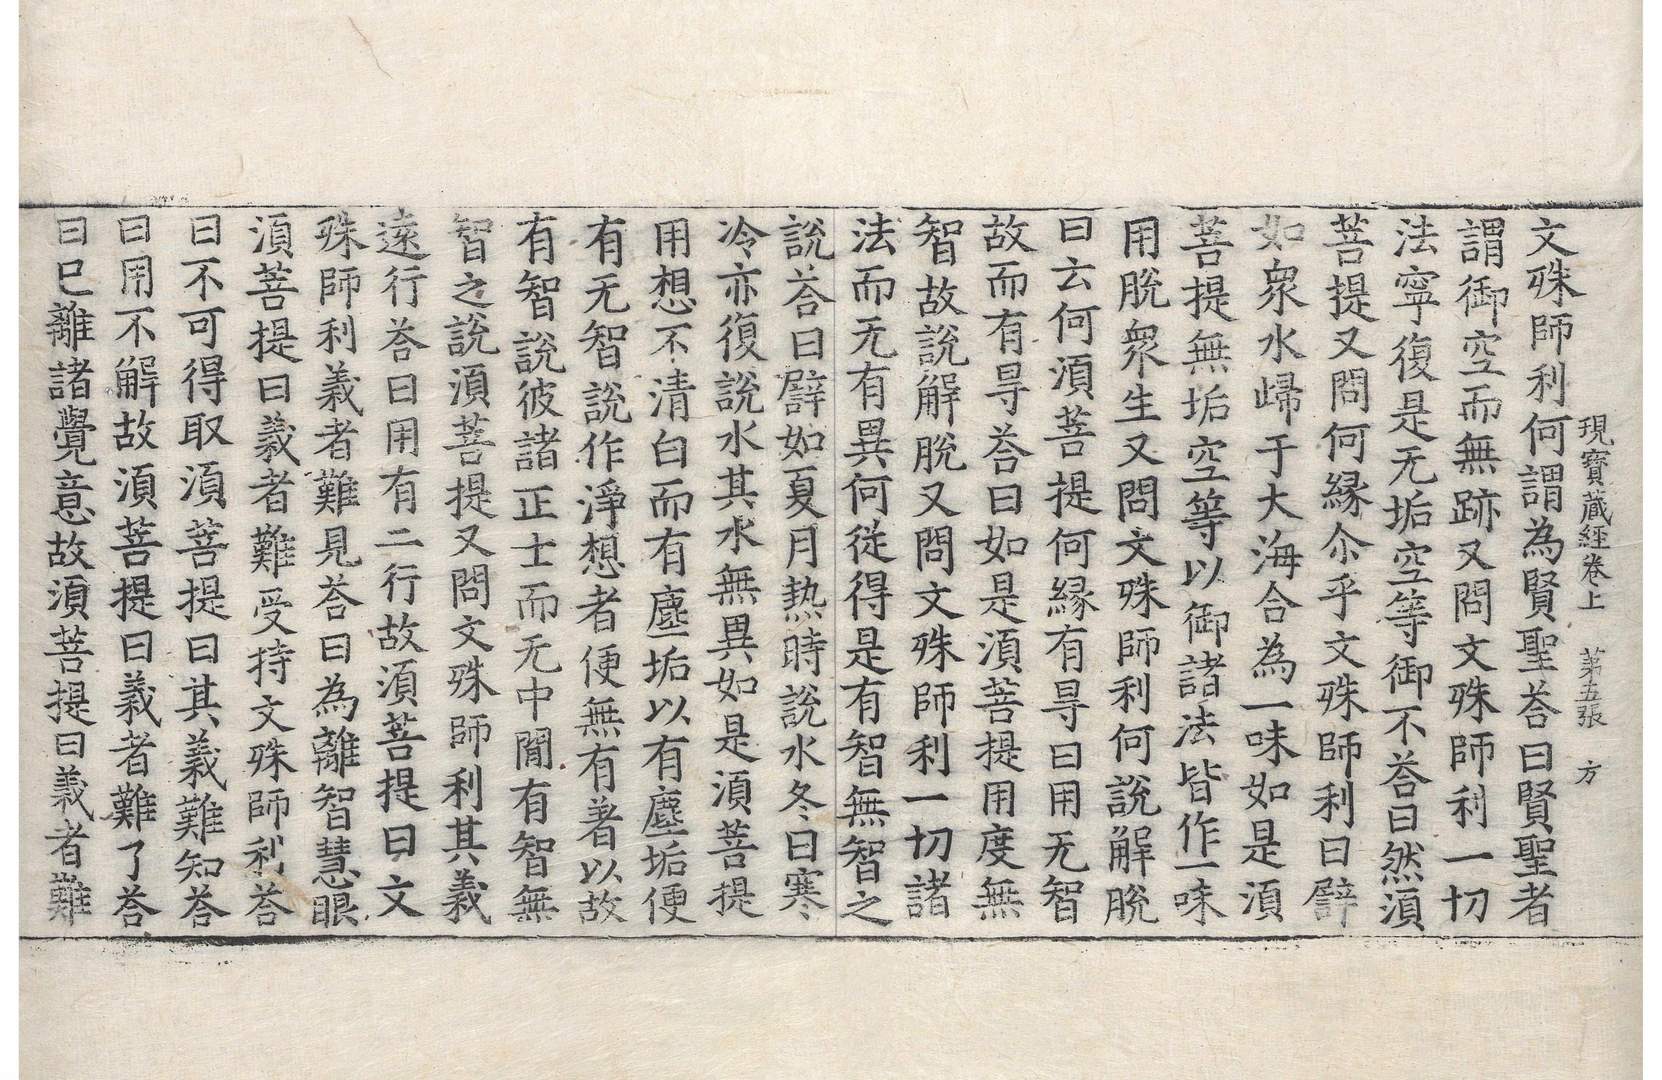 現寶藏經卷上　第五張　方
文殊師利何謂為賢聖荅曰賢聖者
謂御空而無跡又問文殊師利一切
法寧復是无垢空等御不荅曰然湏
菩提又問何緣尒乎文殊師利曰譬
如衆水歸于大海合為一味如是湏
菩提無垢空等以御諸法皆作一味
用脫衆生又問文殊師利何說解脫
曰云何湏菩提何緣有㝵曰用无智
故而有㝵荅曰如是湏菩提用度無
智故說解脫又問文殊師利一切諸
法而无有異何從得是有智無智之
說荅曰譬如夏月热時說水冬曰寒
冷亦復說水其水無異如是湏菩提
用想不清白而有塵垢以有塵垢便
有无智說作淨想者便無有著以故
有智說彼諸正士而无中閒有智無
智之說湏菩提又問文殊師利其義
遠行荅曰用有二行故湏菩提曰文
殊師利義者難見荅曰為離智慧眼
湏菩提曰義者難受持文殊師利荅
曰不可得取湏菩提曰其義難知荅
曰用不解故湏菩提曰義者難了荅
曰已離諸覺意故湏菩提曰義者難